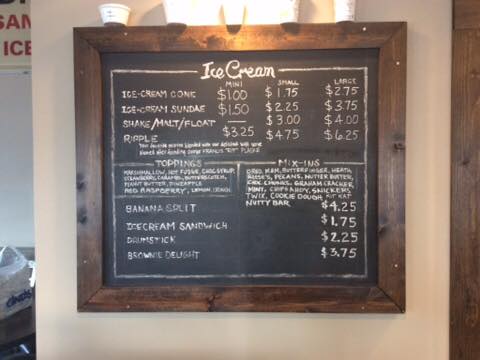 SAN
ICE
Ice Cream
MINI SMALL LARGE
ICE-CREAM CONE $1.00 $1.75 $2.75
ICE-CREAM SUNDAE $1.50 $2.25 $3.75
SHAKE/MALT/FLOAT — $3.00 $4.00
RIPPLE $3.25 $4.75 $6.25
Your favorite mix-ins blended with our delicious soft serve
Named after founding owner FRANCIS "RIP" PLAGER
TOPPINGS
MARSHMALLOW, HOT FUDGE, CHOC SYRUP,
STRAWBERRY, CARAMEL, BUTTERSCOTCH,
PEANUT BUTTER, PINEAPPLE
RED RASPBERRY, LEMON,
MIX-INS
OREO, M&M, BUTTERFINGER, HEATH
REESE'S, PECANS, NUTTER BUTTER,
CHOC CHUNKS, GRAHAM CRACKER,
MINT, CHIPS AHOY, SNICKERS
TWIX, COOKIE DOUGH, KIT KAT
NUTTY BAR
BANANA SPLIT $4.25
ICECREAM SANDWICH $1.75
DRUMSTICK $2.25
BROWNIE DELIGHT $3.75